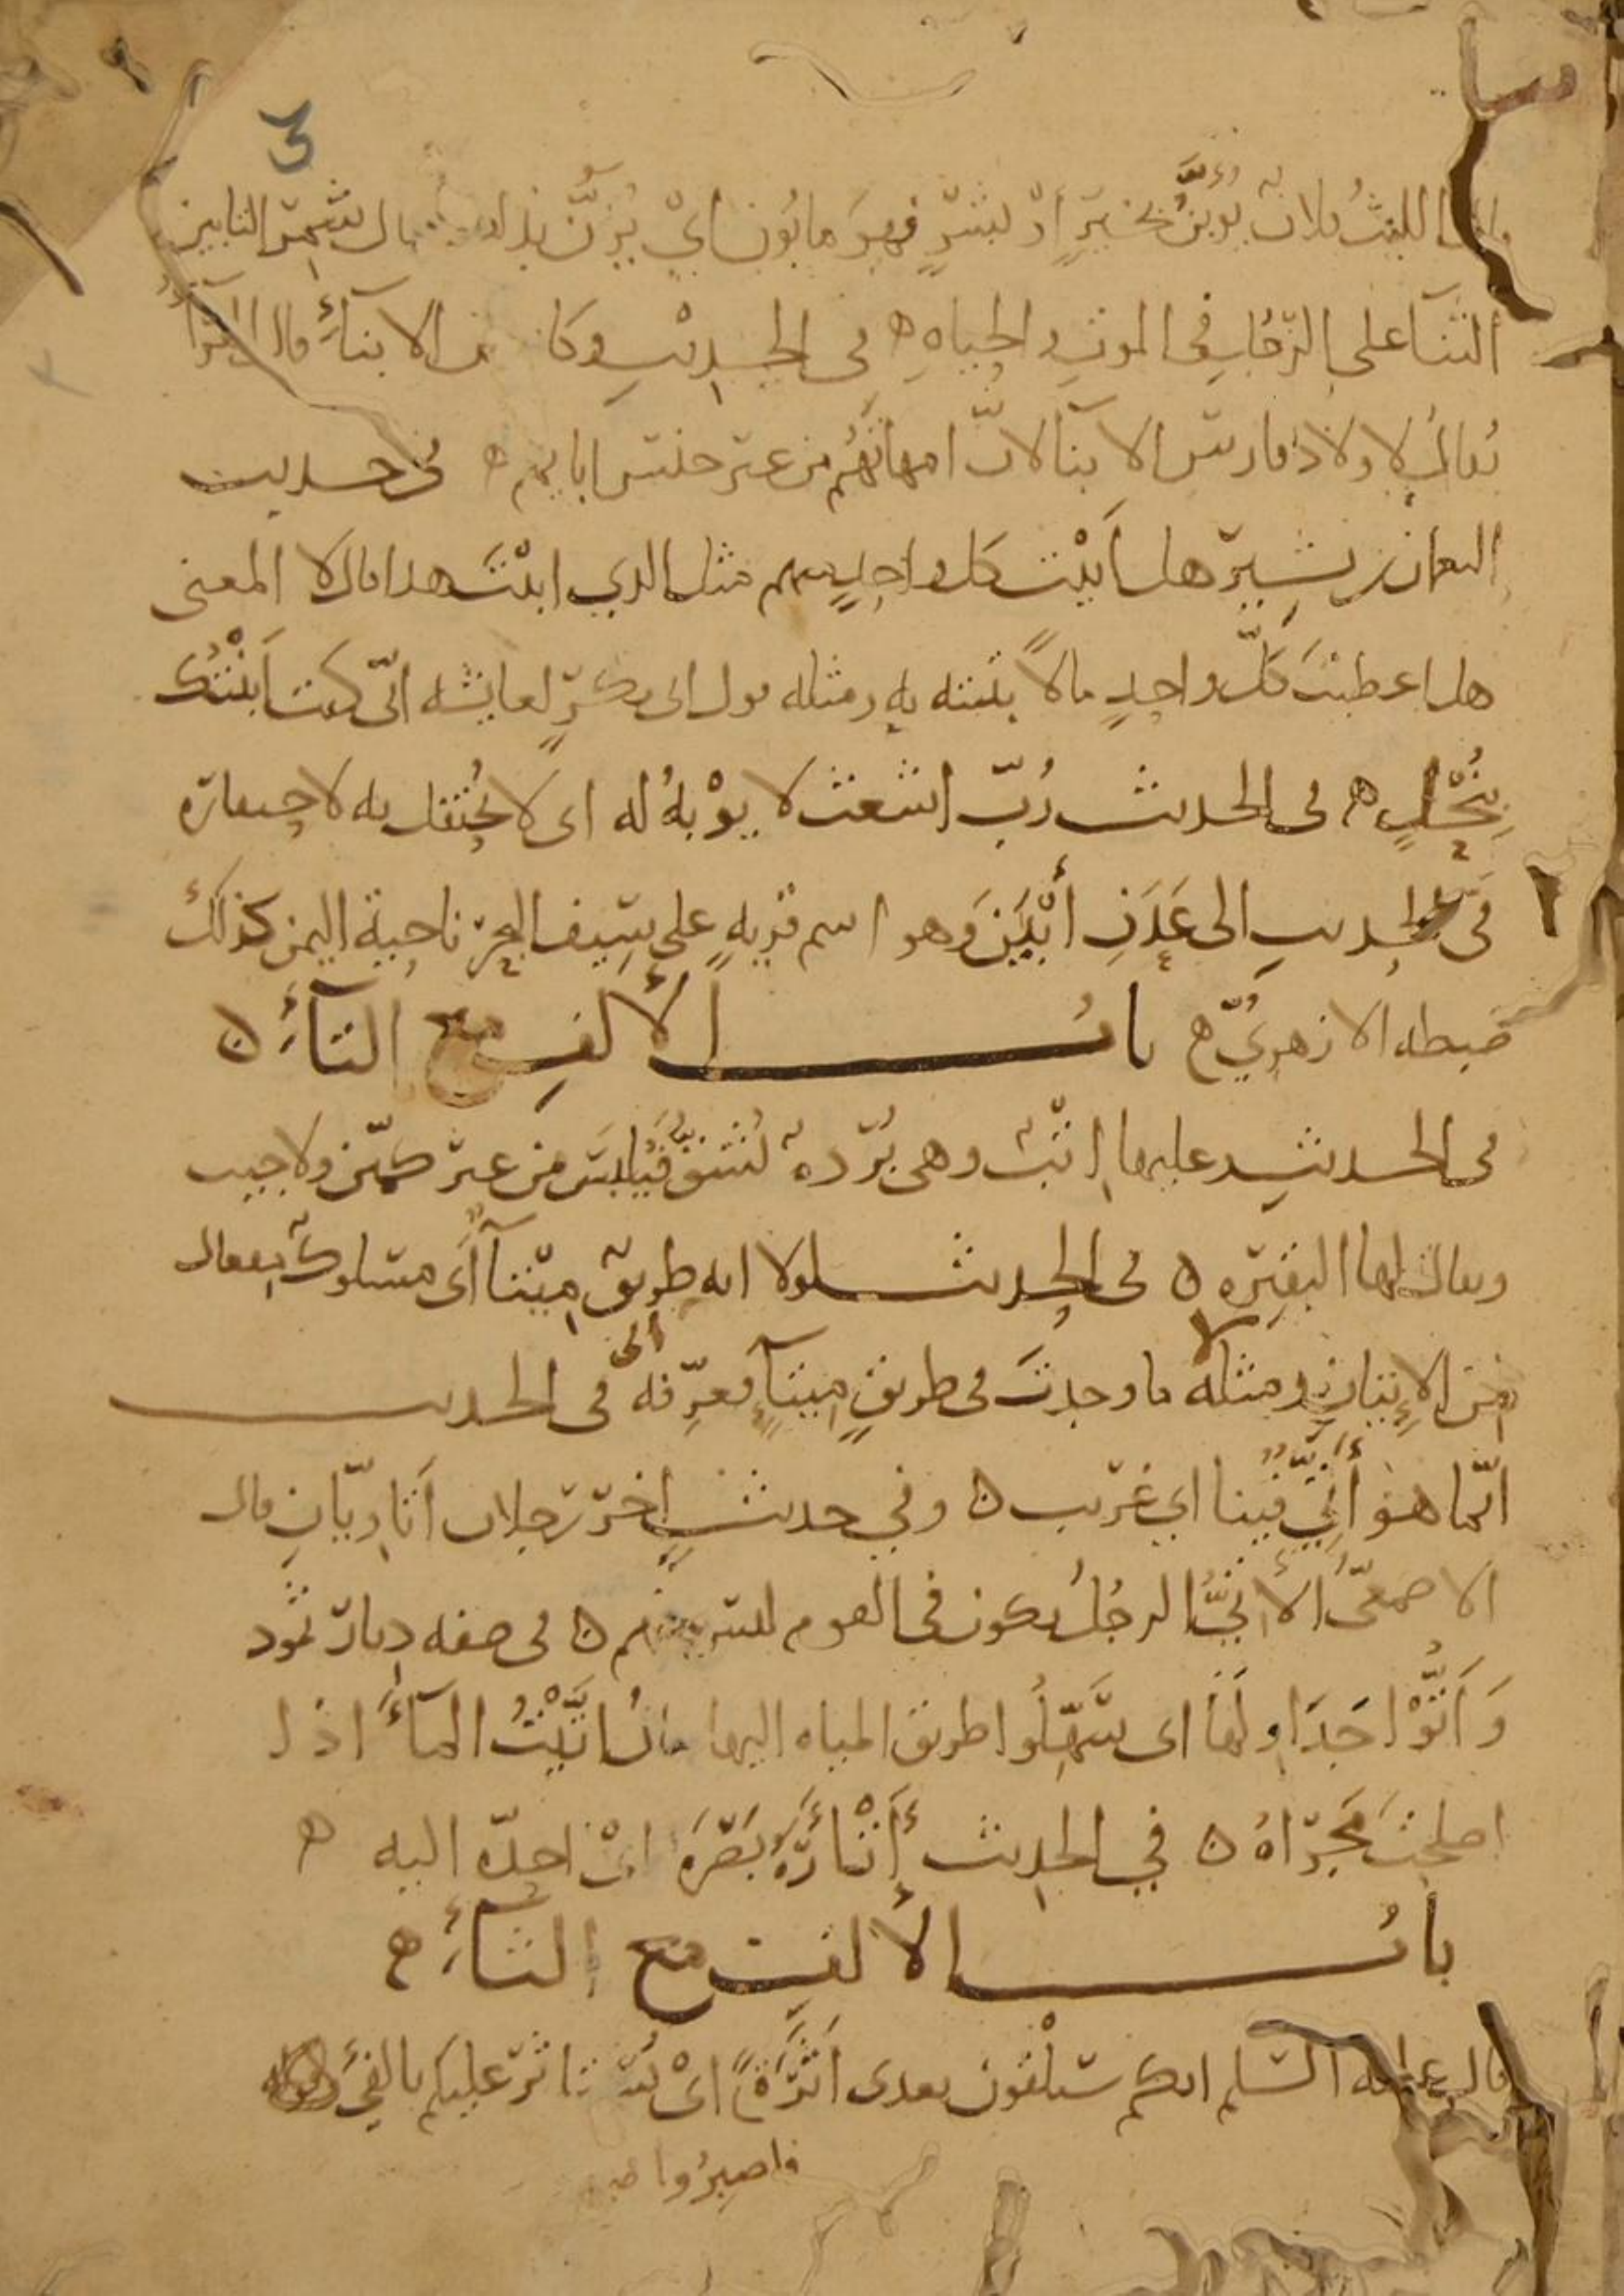 3
الليث فلان يُؤْبَنُ بخيرٍ أو بشرٍّ فهو مأبون اي يُزَنُّ قال شمر التأبين
الثنا على الرجل في الموت والحياه ه في الحديث وكان من الابناءِ قال الفرّاءُ
يُقال لاولاد فارس الابنا لانّ امهاتهم من غير جنس ابايهم ه في حديث
النعمان بن بشير هل أَبَنْتَ كل واحدٍ منهم مثل الذي ابنْتَ هذا قال لا المعنى
هل اعطيتَ كلّ واحدٍ مالاً بنته به ومثله قول ابى بكرٍ لعايشه انّي كنت ابنتُكِ
بنُحْلٍ ه في الحديث رُبّ اشعث لا يؤْبهُ له اى لا يُحتفل به لاحتقاره
في الحديث الى عَدَنِ أَبْيَنَ وهو اسم قريهٍ على سيف البحر ناحية اليمن كذلك
ضبطه الازهريُّ ه بابُ الألفِ مع التاءِ ن
في الحديث عليها إتْبٌ وهى بُرْدهٌ تُشقُّ فتُلبَس من غير كمّين ولا جيب
ويقال لها البقيره ن في الحديث لولا انه طريقٌ مِيْتآءٌ أى مسلوكٌ مفعال
من الإتيانِ ومثله ما وجدتَ في طريقٍ مِيتآءٍ فعرّفه في الحديث
الى
انّما هو أَتِيٌّ فينا اي غريب ن وفي حديثٍ اخر رجلان أتاويّانِ قال
الاصمعىُّ الأَتيُّ الرجُلُ يكون في القوم ليس منهم ن في صفه ديار ثمود
وَأَتَّوْا جَدَاوِلَهَا اى سَهَّلُوا طريق المياه اليها يقالُ اتَّيْتُ المآءَ اذا
اصلحتَ مَجْراهُ ن في الحديث أَتْأَرَهُ بَصَرَهُ اىْ احدّه اليه ه
بابُ الألفِ مع الثاءِ ه
قال عليه السلم انكم ستلْقون بعدى أَثَرَةً اىْ يُستاثر عليكم بالفئ
فاصبرُوا